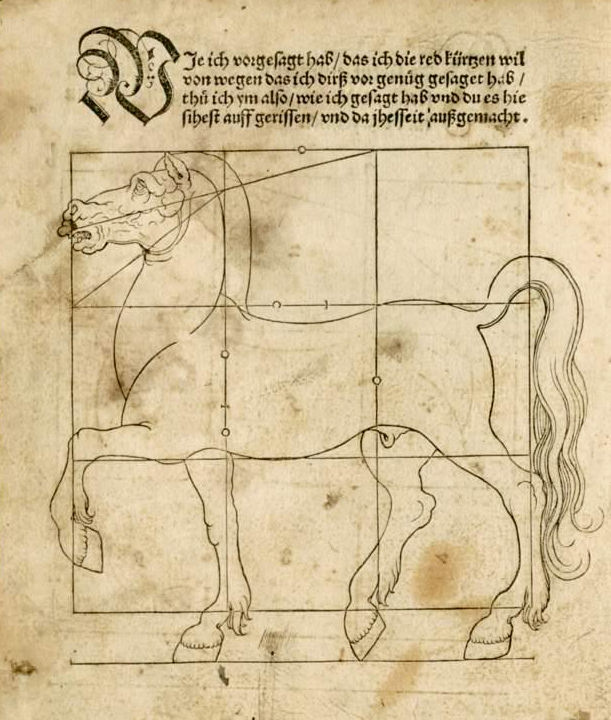 WJe ich vorgesagt hab/ das ich die red kürtzen wil
von wegen das ich dirß vor genůg gesaget hab /
thů ich ym also/ wie ich gesagt hab vnd du es hie
sihest auff gerissen/ vnd da jhesseit außgemacht.